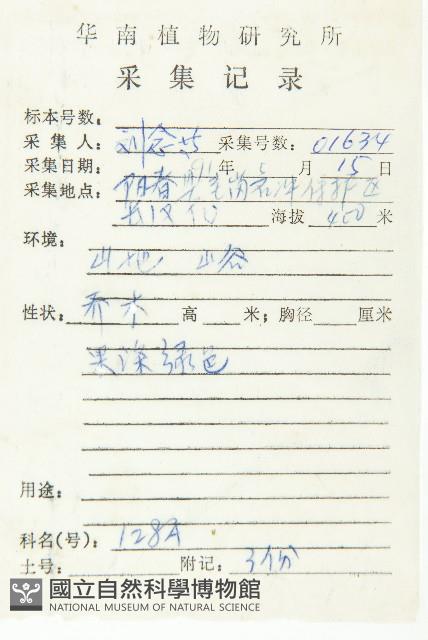 华南植物研究所
采集记录
标本号数：
采集人：刘念 采集号数：01634
采集日期： 91年 月15日
采集地点：阳春 保护区
海拔 400 米
环境：
山地 山谷
性状：乔木 高 米；胸径 厘米
果深绿色
用途：
科名(号)：128A
土号： 附记：3份
國立自然科學博物館
NATIONAL MUSEUM OF NATURAL SCIENCE